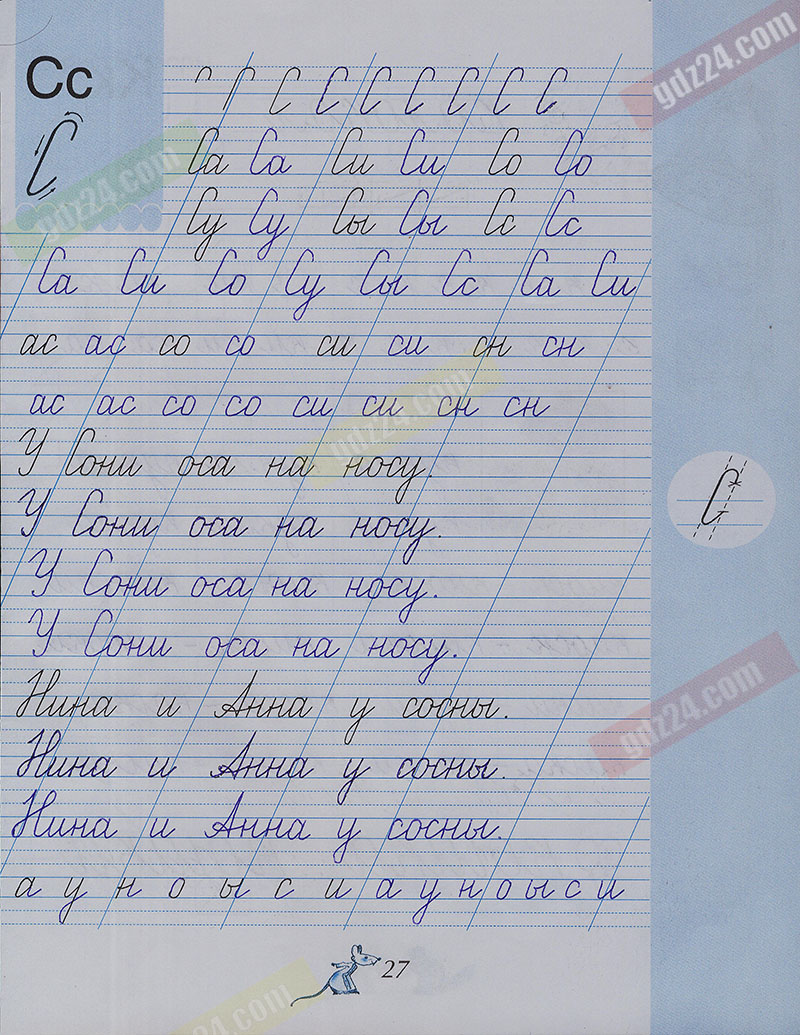 Сс
gdz24.com
С С С С С С С С С
Са Са Си Си Со Со
gdz24.com
Су Су Сы Сы Сс Сс
Са Си Со Су Сы Сс Са Си
ас ас со со си си сн сн
ас ас со со си си сн сн
gdz24.com
У Сони оса на носу.
У Сони оса на носу.
У Сони оса на носу.
У Сони оса на носу.
Нина и Анна у сосны.
gdz24.com
Нина и Анна у сосны.
Нина и Анна у сосны.
а у н о ы с и а у н о ы с и
27
gdz24.com